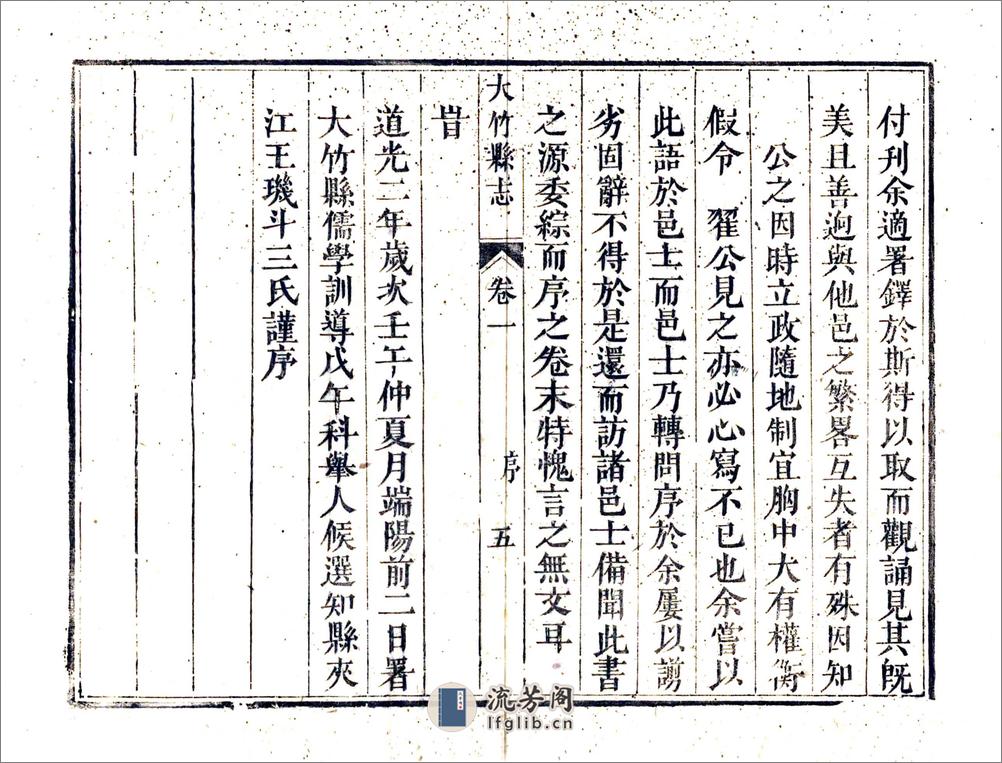 付刊余適署鐸於斯得以取而觀誦見其旣
美且善逈與他邑之繁畧互失者有殊因知
公之因時立政隨地制宜胸中大有權衡
假令 翟公見之亦必心寫不已也余嘗以
此語於邑士而邑士乃轉問序於余屢以謭
劣固辭不得於是還而訪諸邑士備聞此書
之源委綜而序之卷末特愧言之無文耳
大竹縣志 卷一 序 五
旹
道光二年歲次壬午仲夏月端陽前二日署
大竹縣儒學訓導戊午科舉人候選知縣夾
江王璣斗三氏謹序
流芳阁
lfglib.cn